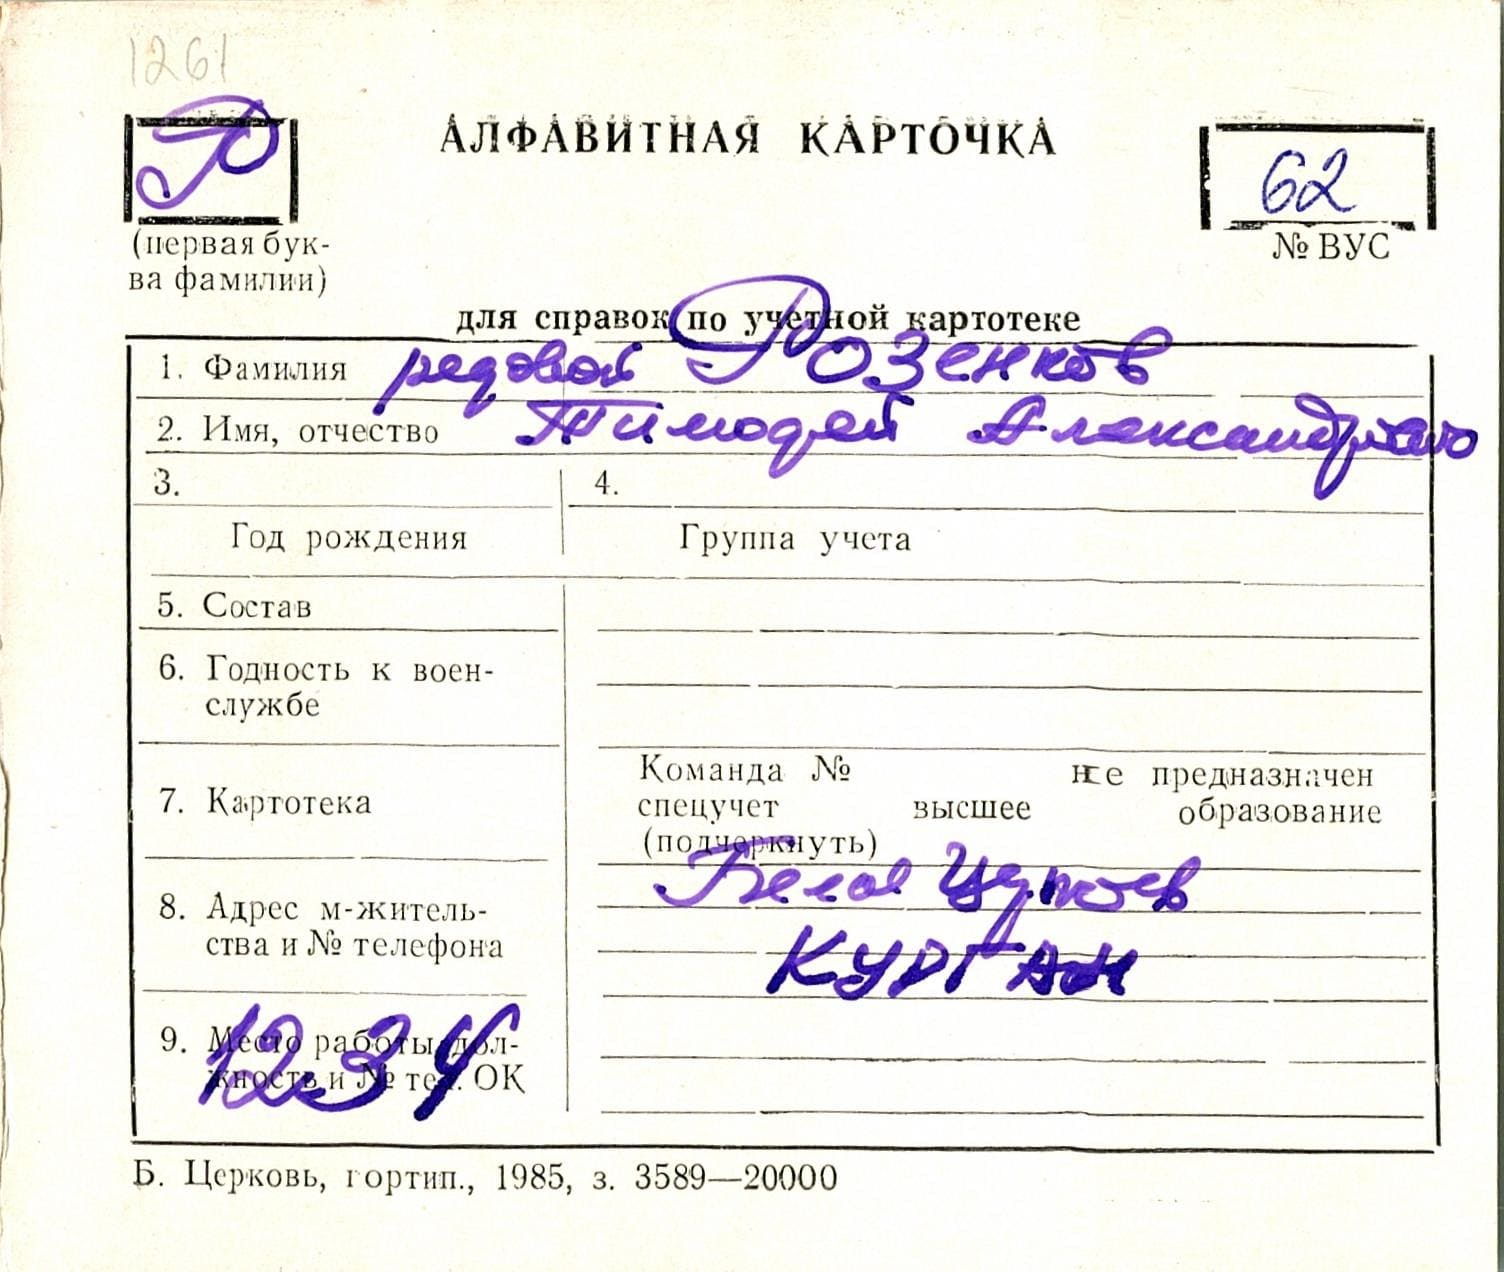 1261
Р
АЛФАВИТНАЯ КАРТОЧКА
62
(первая бук-
ва фамилии)
№ ВУС
для справок по учетной картотеке
1. Фамилия рядовой Розенков
2. Имя, отчество Тимофей
3.
4.
Год рождения
Группа учета
5. Состав
6. Годность к воен-
службе
7. Картотека
Команда № не предназначен
спецучет высшее образование
(подчеркнуть)
8. Адрес м-житель-
ства и № телефона
Курган
9. Место работы, дол-
жность и № тел. ОК
1234
Б. Церковь, гортип., 1985, з. 3589—20000